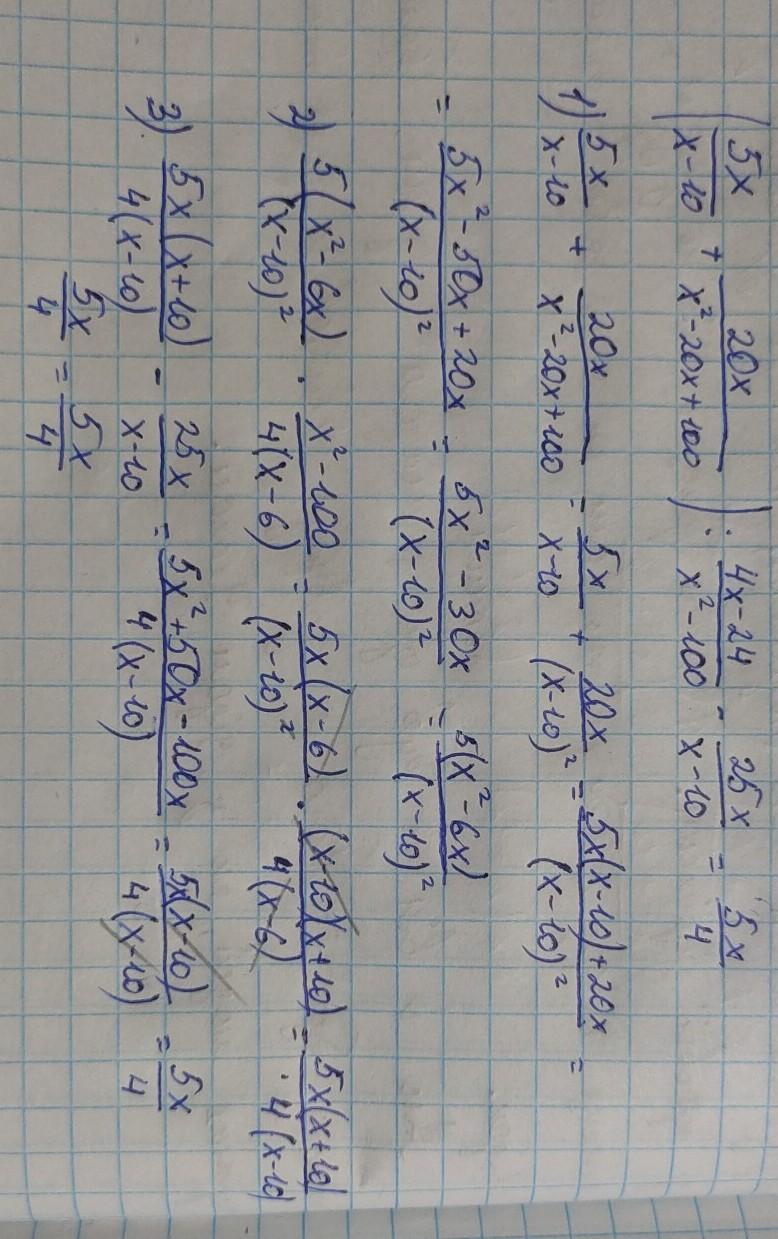 (5x/(x-10) + 20x/(x²-20x+100)) : (4x-24)/(x²-100) - 25x/(x-10) = 5x/4
1) 5x/(x-10) + 20x/(x²-20x+100) = 5x/(x-10) + 20x/(x-10)² = (5x(x-10)+20x)/(x-10)² =
= (5x²-50x+20x)/(x-10)² = (5x²-30x)/(x-10)² = 5(x²-6x)/(x-10)²
2) 5(x²-6x)/(x-10)² · (x²-100)/4(x-6) = 5x(x-6)/(x-10)² · (x-10)(x+10)/4(x-6) = 5x(x+10)/4(x-10)
3) 5x(x+10)/4(x-10) - 25x/(x-10) = (5x²+50x-100x)/4(x-10) = 5x(x-10)/4(x-10) = 5x/4
5x/4 = 5x/4